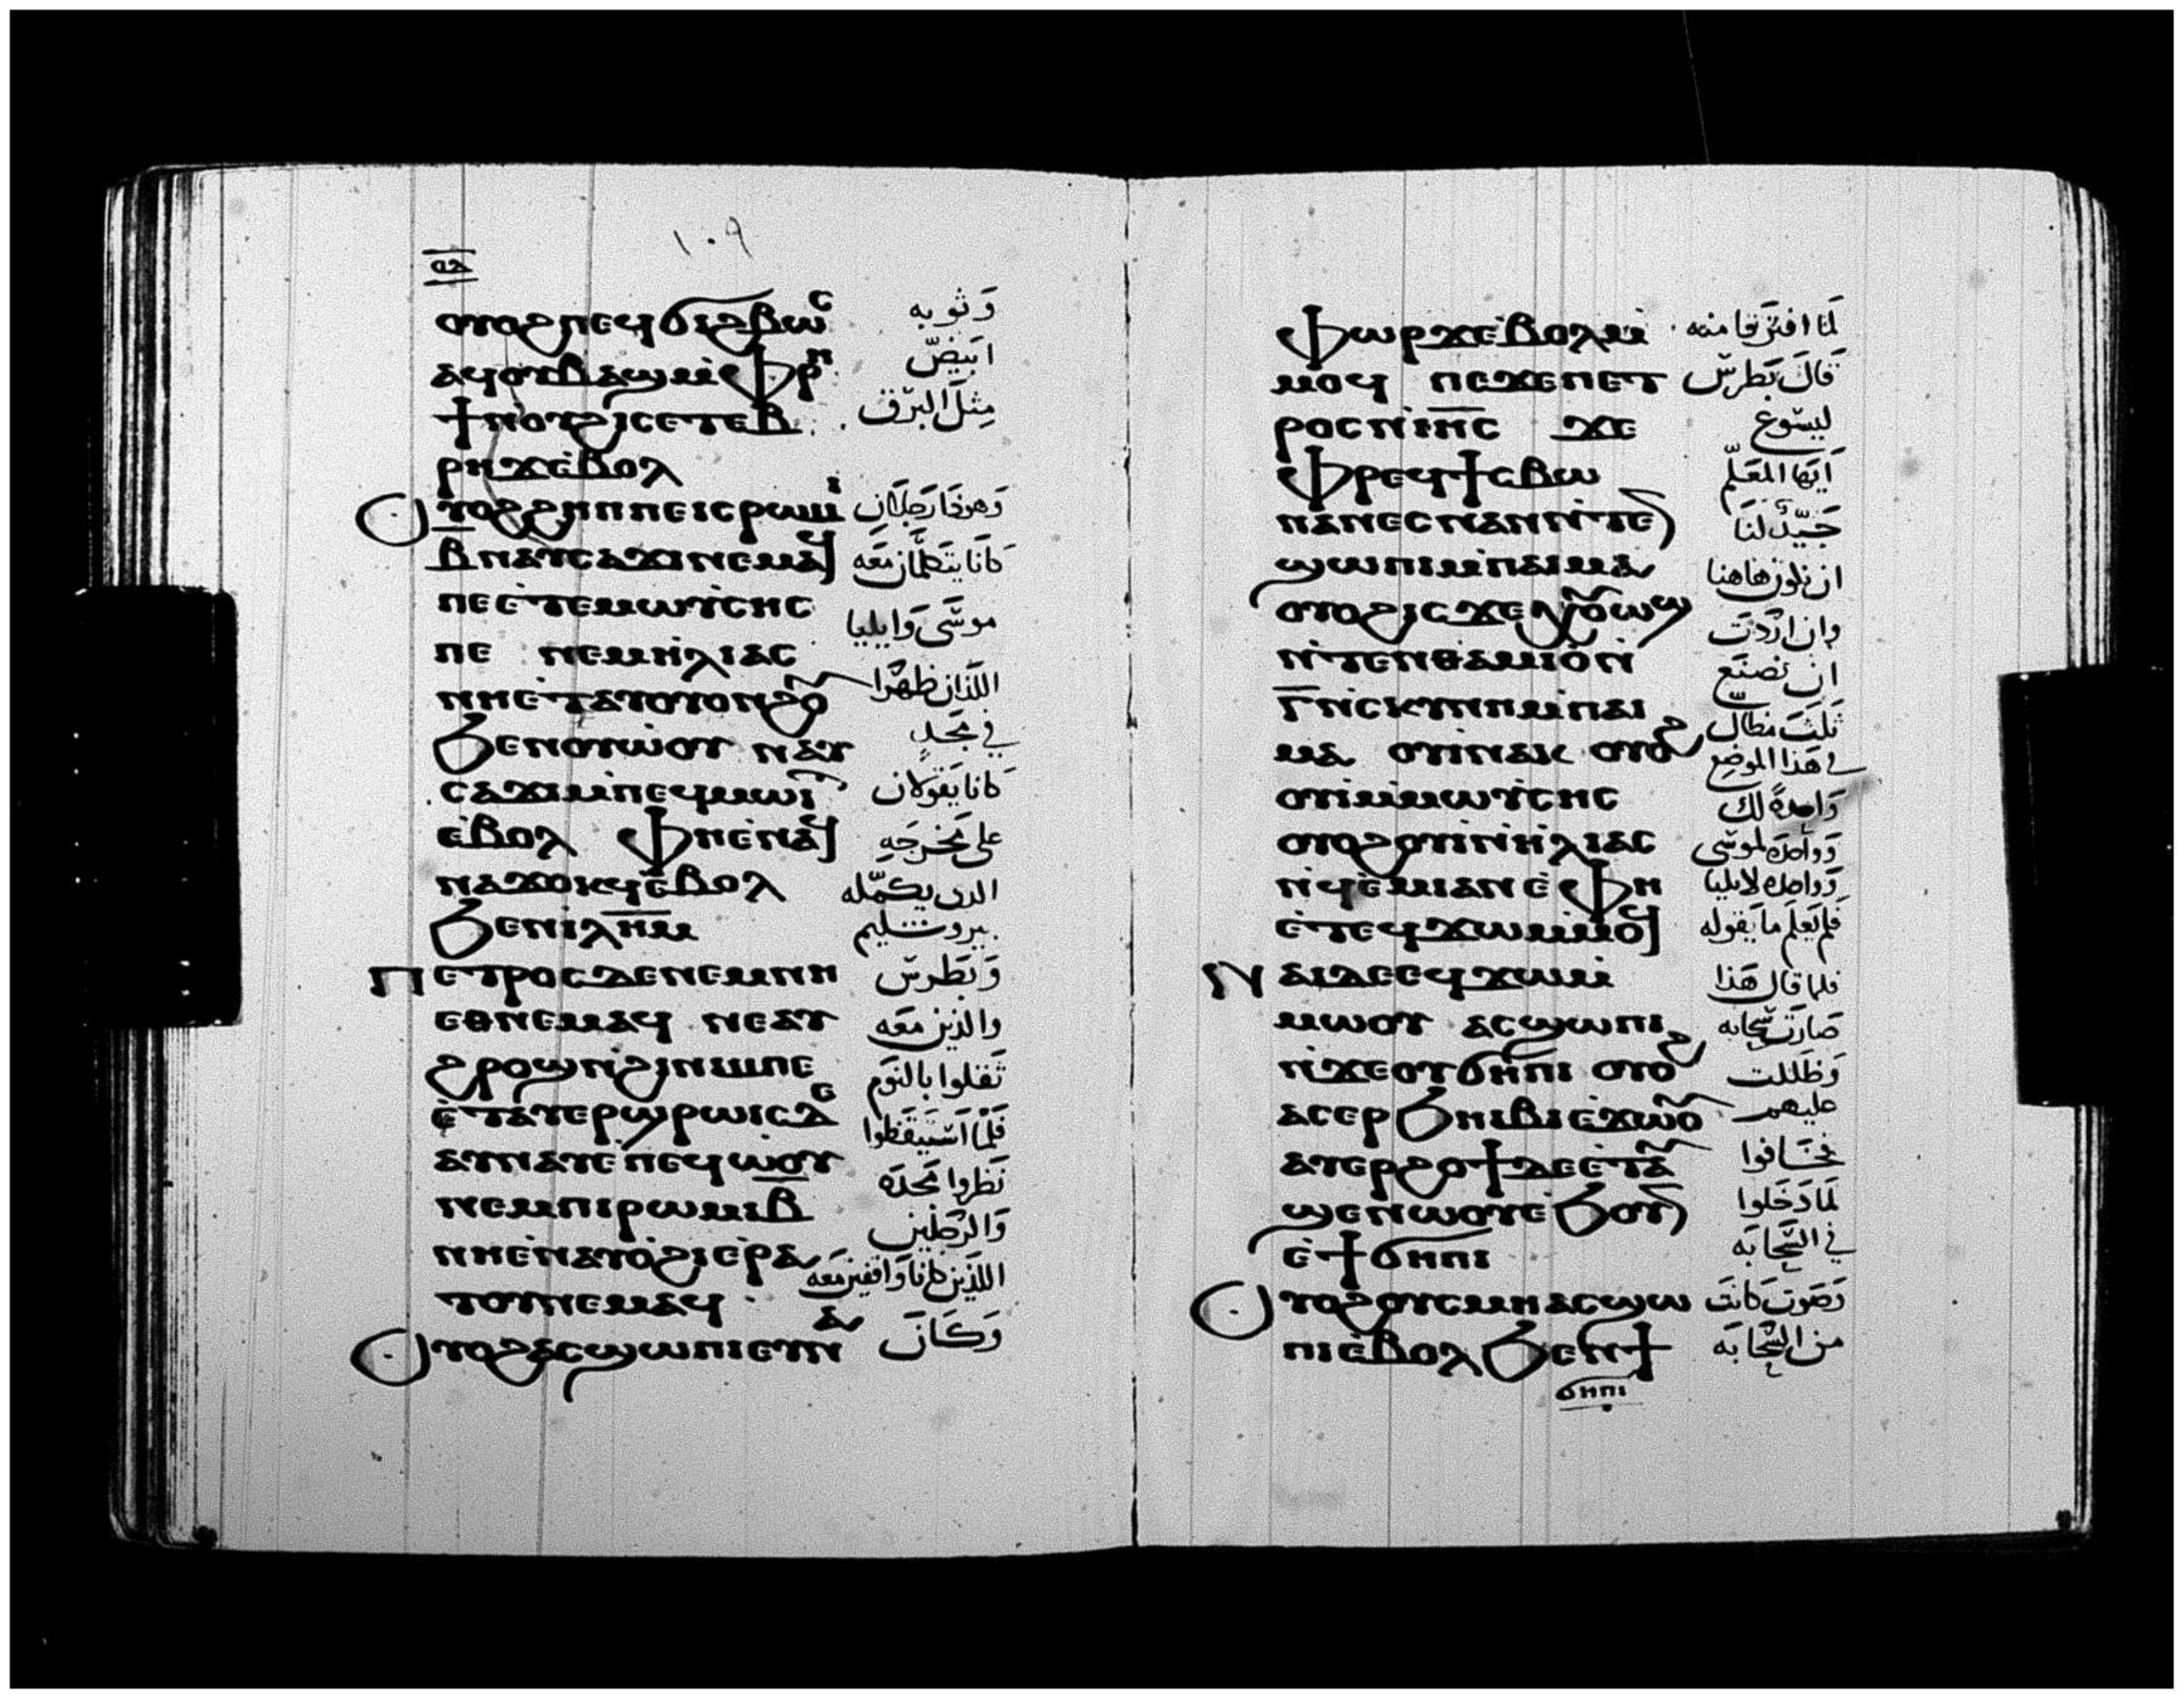 ١٠٩
ⲟⲩⲟϩⲡⲉϥϭⲓϩⲃⲱⲥ وَثوبه
ⲁϥⲟⲩⲃⲁϣⲙ̀ⲫⲣⲏ ابيَضّ
ϯⲛⲟⲩϩⲓⲥⲉⲧⲉⲃ مِثلَ البَرق
ⲣⲏϫⲉ̀ⲃⲟⲗ
ⲟⲩⲟϩϩⲏⲡⲡⲉⲓⲥⲣⲱⲙⲓ وَهوذَا رَجلَان
ⲃ̅ⲛⲁⲩⲥⲁϫⲓⲛⲉⲙⲁϥ كانَا يتَكلّمَان مَعَه
ⲡⲉⲉ̀ⲧⲉⲙⲱⲩ̀ⲥⲏⲥ موسَى وَايليا
ⲡⲉ ⲛⲉⲙⲏ̀ⲗⲓⲁⲥ
ⲛⲏⲉ̀ⲧⲁⲩⲟⲩⲟⲛϩⲟⲩ اللذَان ظهَرَا
ϧⲉⲛⲟⲩⲱ̀ⲟⲩ ⲛⲁⲩ في مَجدٍ
ⲥⲁϫⲓⲙ̀ⲡⲉϥⲙⲱⲓⲧ كانَا يَقولَان
ⲉ̀ⲃⲟⲗ ⲫⲏⲉ̀ⲛⲁϥ على مَخرَجَهِ
ⲛⲁϫⲟⲕϥⲉ̀ⲃⲟⲗ الدى يكمّله
ϧⲉⲛⲓⲗ̅ⲏ̅ⲙ̅ بيروشليم
ⲡⲉⲧⲣⲟⲥⲇⲉⲛⲉⲙⲛⲏ وَبَطرسّ
ⲉⲑⲛⲉⲙⲁϥ ⲛⲉⲁⲩ والذين مَعَه
ϩⲣⲟϣⲛ̀ϩⲓⲛⲓⲙⲡⲉ ثَقلوا بالنَوم
ⲉ̀ⲧⲁⲩⲉⲣϣⲣⲱⲓⲥⲇⲉ فَلمّا استيقَظوا
ⲁⲩⲛⲁⲩⲉ̀ⲡⲉϥⲱ̀ⲟⲩ نَظروا مَجدَه
ⲛⲉⲙⲡⲓⲣⲱⲙⲓⲃ̅ وَالرَجلين
ⲛⲏⲉ̀ⲛⲁⲩⲟ̀ϩⲓⲉ̀ⲣⲁ اللذَين كانَا وَاقفين مَعَه
ⲧⲟⲩⲛⲉⲙⲁϥ
ⲟⲩⲟϩⲁⲥϣⲱⲡⲓⲉⲧⲁⲩ وَكَانَ
ⲫⲱⲣϫⲉ̀ⲃⲟⲗⲙ̀ لَمّا افتَرَقا منه
ⲙⲟϥ ⲡⲉϫⲉⲡⲉⲧ قَالَ بَطرسّ
ⲣⲟⲥⲛ̀ⲓⲏ̅ⲥ ϫⲉ ليسَوع
ⲫⲣⲉϥϯⲥⲃⲱ ايّهَا المعَلّم
ⲛⲁⲛⲉⲥⲛⲁⲛⲛ̀ⲧⲉⲛ جَيّدٌ لنَا
ϣⲱⲡⲓⲙ̀ⲡⲁⲓⲙⲁ ان نكون هاهنا
ⲟⲩⲟϩⲓⲥϫⲉⲭⲟⲩⲱϣ وان اردتَ
ⲛ̀ⲧⲉⲛⲑⲁⲙⲓⲟ̀ⲛ ان نصنَع
ⲅ̅ⲛ̀ⲥⲕⲩⲛⲏⲙ̀ⲡⲁⲓ ثلثَ مَظالّ
ⲙⲁ ⲟⲩⲓ̀ⲛⲁⲕ ⲟⲩⲟϩ في هَذا الموضِع
ⲟⲩⲓ̀ⲙ̀ⲙⲱⲩ̀ⲥⲏⲥ وَاحدةً لك
ⲟⲩⲟϩⲟⲩⲓ̀ⲛ̀ⲏ̀ⲗⲓⲁⲥ وَواحدَه لموسَى
ⲛ̀ϥⲉ̀ⲙⲓⲁⲛⲉ̀ⲫⲏ وَواحدَه لايليا
ⲉ̀ⲧⲉϥϫⲱⲙ̀ⲙⲟϥ فَلم يَعلَم مَا يَقوله
ⲛⲁⲓⲇⲉⲉϥϫⲱⲙ̀ فلما قال هَذا
ⲙⲱⲟⲩ ⲁⲥϣⲱⲡⲓ صَارَت سّحَابه
ⲛ̀ϫⲉⲟⲩϭⲏⲡⲓ ⲟⲩⲟϩ وَظَللت
ⲁⲥⲉⲣϧⲏⲓⲃⲓⲉ̀ϫⲱⲟⲩ عليهم
ⲁⲩⲉⲣϩⲟϯⲇⲉⲉ̀ⲧⲁⲩ فخَافوا
ϣⲉⲛⲱⲟⲩⲉ̀ϧⲟⲩⲛ لَمّا دَخَلوا
ⲉ̀ϯϭⲏⲡⲓ في السّحَابَه
ⲟⲩⲟϩⲟⲩⲥⲙⲏⲁⲥϣⲱ وَصَوت كَانت
ⲡⲓⲉ̀ⲃⲟⲗϧⲉⲛϯ من السّحَابَه
ϭⲏⲡⲓ